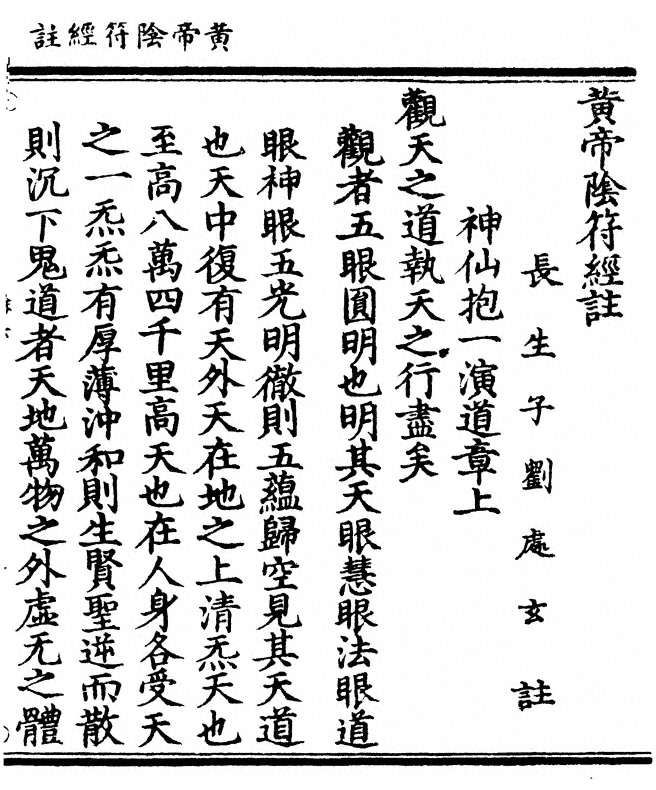 黄帝陰符經註
黄帝陰符經註
長生子劉處玄註
神仙抱一演道章上
觀天之道執天之行盡矣
觀者五眼圓明也明其天眼慧眼法眼道
眼神眼五光明徹則五蘊歸空見其天道
也天中復有天外天在地之上清炁天也
至高八萬四千里高天也在人身各受天
之一炁炁有厚薄沖和則生賢聖逆而散
則沉下鬼道者天地萬物之外虛无之體